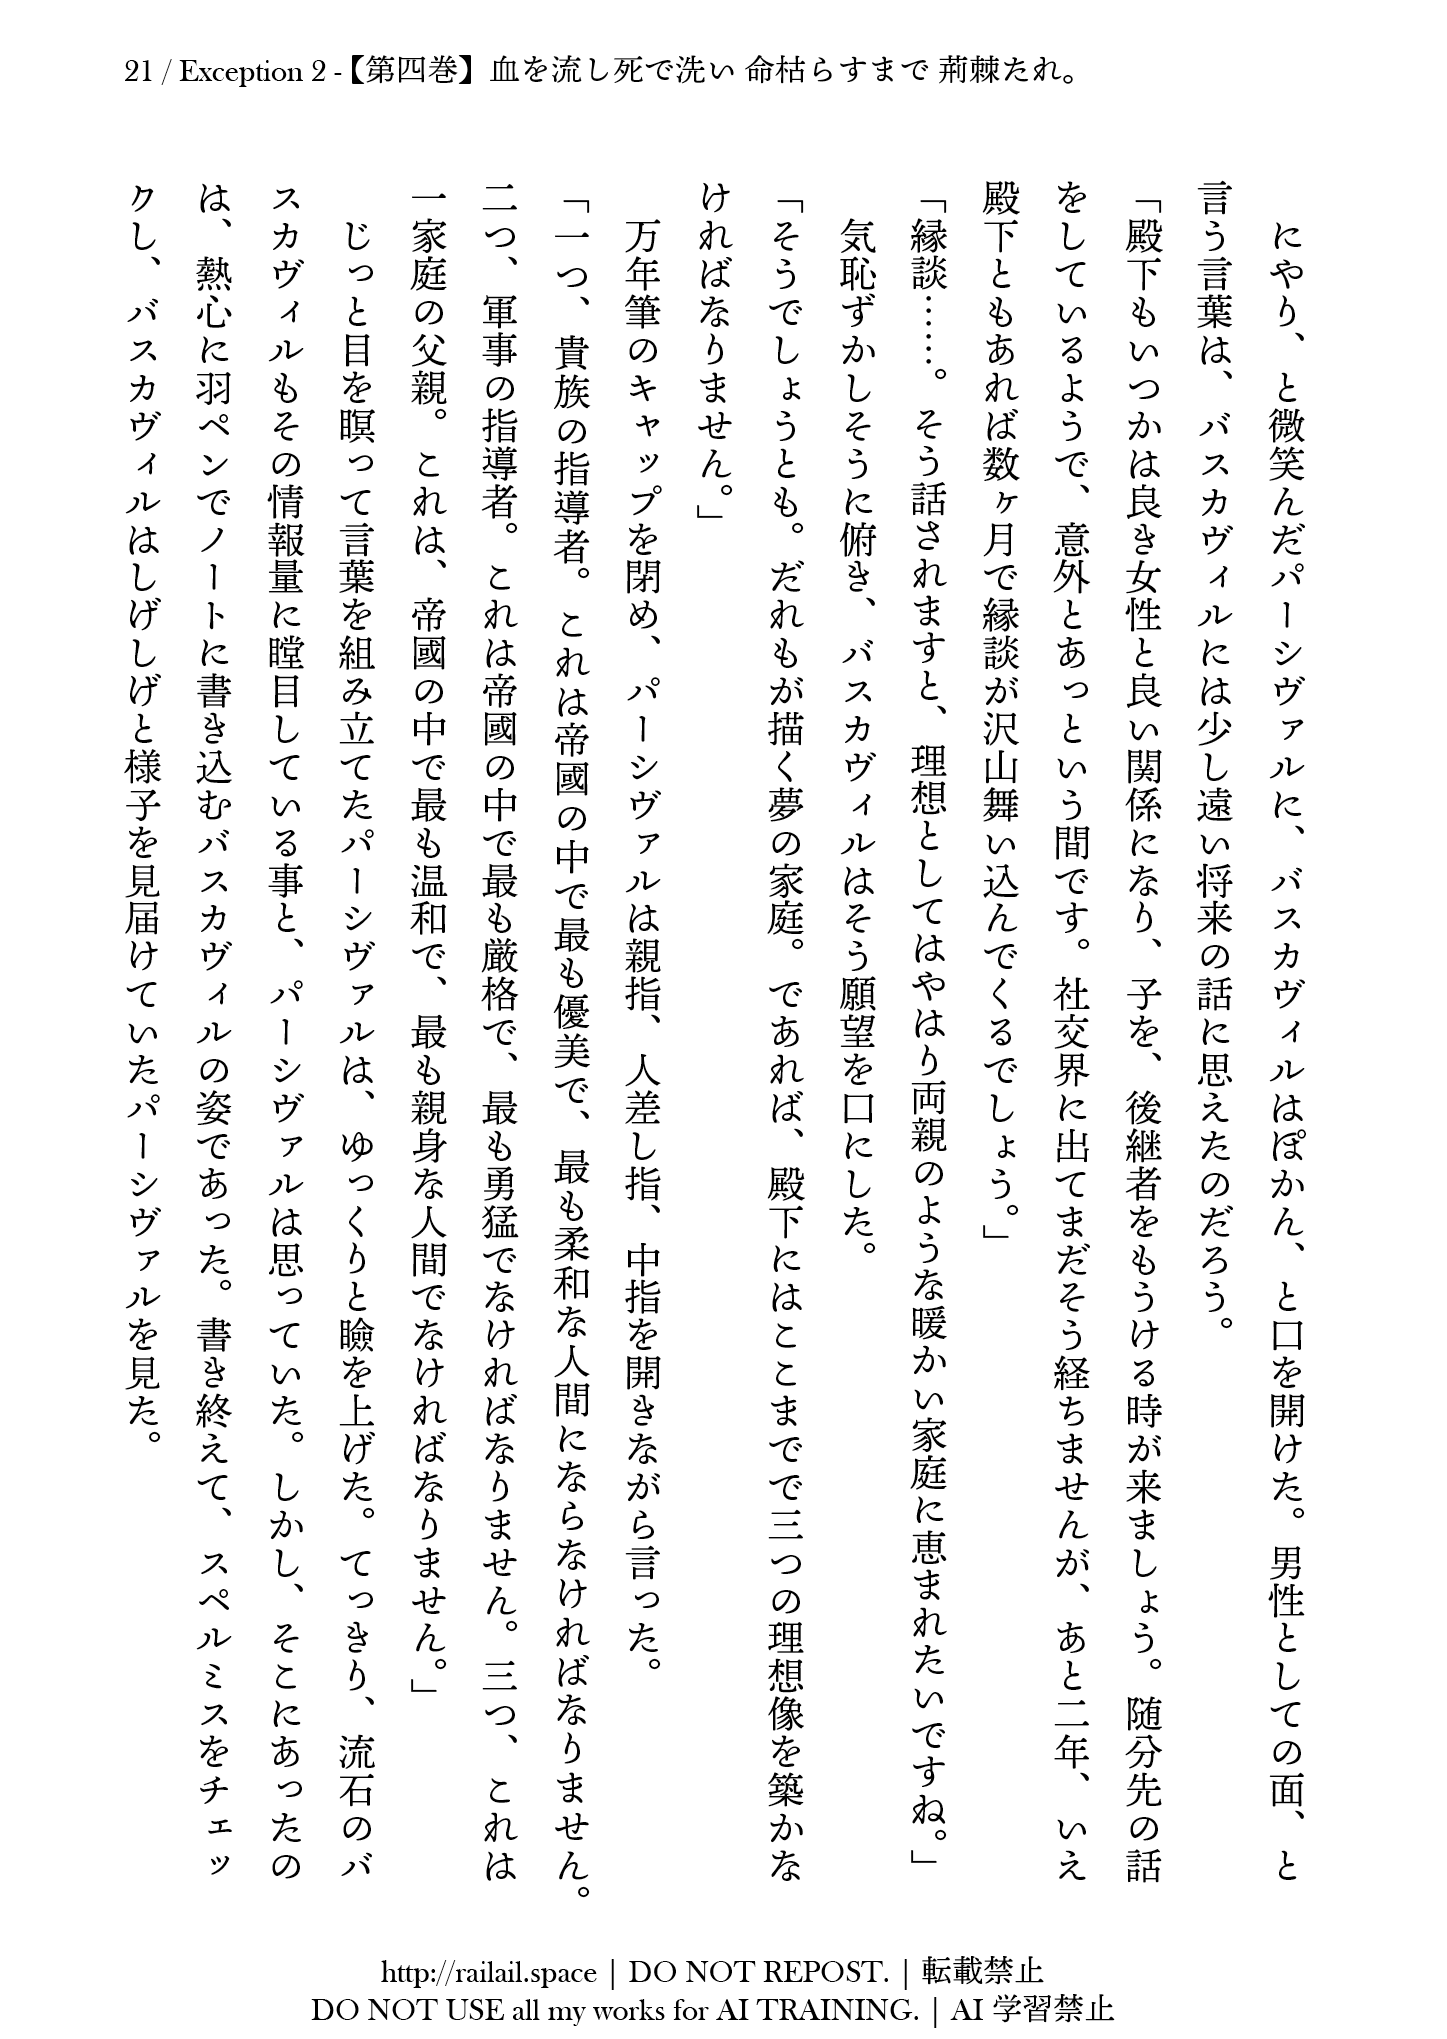 21 / Exception 2 -【第四巻】血を流し死で洗い 命枯らすまで 荊棘たれ。
にやり、と微笑んだパーシヴァルに、バスカヴィルはぽかん、と口を開けた。男性としての面、と
言う言葉は、バスカヴィルには少し遠い将来の話に思えたのだろう。
「殿下もいつかは良き女性と良い関係になり、子を、後継者をもうける時が来ましょう。随分先の話
をしているようで、意外とあっという間です。社交界に出てまだそう経ちませんが、あと二年、いえ
殿下ともあれば数ヶ月で縁談が沢山舞い込んでくるでしょう。」
「縁談……。そう話されますと、理想としてはやはり両親のような暖かい家庭に恵まれたいですね。」
気恥ずかしそうに俯き、バスカヴィルはそう願望を口にした。
「そうでしょうとも。だれもが描く夢の家庭。であれば、殿下にはここまでで三つの理想像を築かな
ければなりません。」
万年筆のキャップを閉め、パーシヴァルは親指、人差し指、中指を開きながら言った。
「一つ、貴族の指導者。これは帝國の中で最も優美で、最も柔和な人間にならなければなりません。
二つ、軍事の指導者。これは帝國の中で最も厳格で、最も勇猛でなければなりません。三つ、これは
一家庭の父親。これは、帝國の中で最も温和で、最も親身な人間でなければなりません。」
じっと目を瞑って言葉を組み立てたパーシヴァルは、ゆっくりと瞼を上げた。てっきり、流石のバ
スカヴィルもその情報量に瞠目している事と、パーシヴァルは思っていた。しかし、そこにあったの
は、熱心に羽ペンでノートに書き込むバスカヴィルの姿であった。書き終えて、スペルミスをチェッ
クし、バスカヴィルはしげしげと様子を見届けていたパーシヴァルを見た。
http://railail.space | DO NOT REPOST. | 転載禁止
DO NOT USE all my works for AI TRAINING. | AI 学習禁止